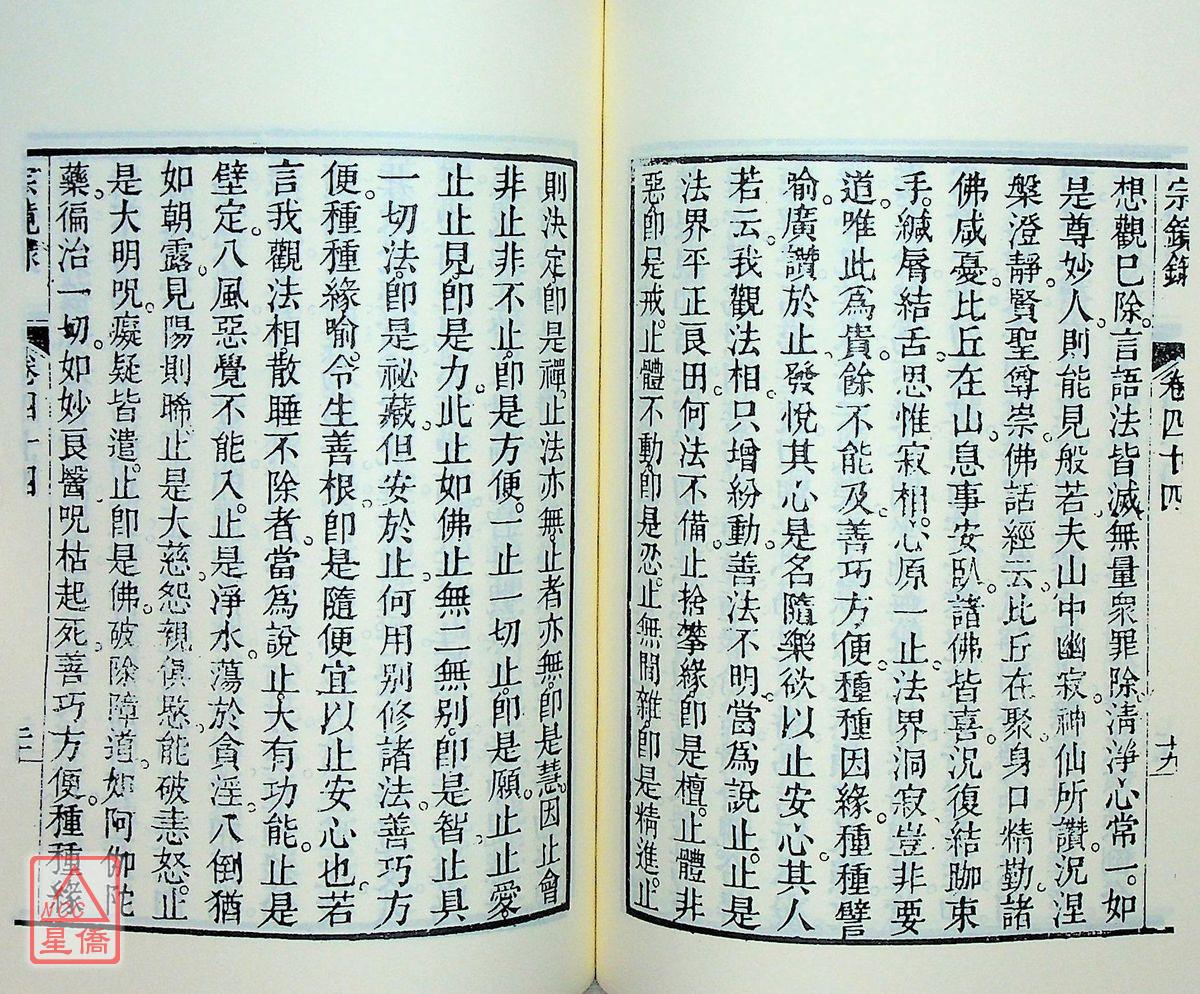 宗鏡錄 卷四十四 十九
想觀已除。言語法皆滅。無量眾罪除。清淨心常一。如
是尊妙人。則能見般若。夫山中幽寂。神仙所讚。況涅
槃澄靜。賢聖尊崇。佛話經云。比丘在聚。身口精勤。諸
佛咸憂。比丘在山。息事安臥。諸佛皆喜。況復結跏束
手。緘脣結舌。思惟寂相。心原一止。法界洞寂。豈非要
道。唯此為貴。餘不能及。善巧方便。種種因緣。種種譬
喻。廣讚於止。發悅其心。是名隨樂欲。以止安心。其人
若云。我觀法相。只增紛動。善法不明。當為說止。止是
法界平正良田。何法不備。止捨攀緣。即是檀。止體非
惡。即是戒。止體不動。即是忍。止無間雜。即是精進。止
則決定。即是禪。止法亦無。止者亦無。即是慧。因止會
非止非不止。即是方便。一止一切止。即是願。止止愛
止止見。即是力。此止如佛止。無二無別。即是智。止具
一切法。即是祕藏。但安於止。何用別修諸法。善巧方
便。種種緣喻。令生善根。即是隨便宜以止安心也。若
言我觀法相散睡不除者。當為說止。大有功能。止是
壁定。八風惡覺不能入。止是淨水。蕩於貪淫。八倒猶
如朝露。見陽則晞。止是大慈。怨親俱愍。能破恚怒。止
是大明呪。癡疑皆遣。止即是佛。破除障道。如阿伽陀
藥。徧治一切。如妙良醫。呪枯起死。善巧方便。種種緣
宗鏡錄 卷四十四 二十
NCC
星僑